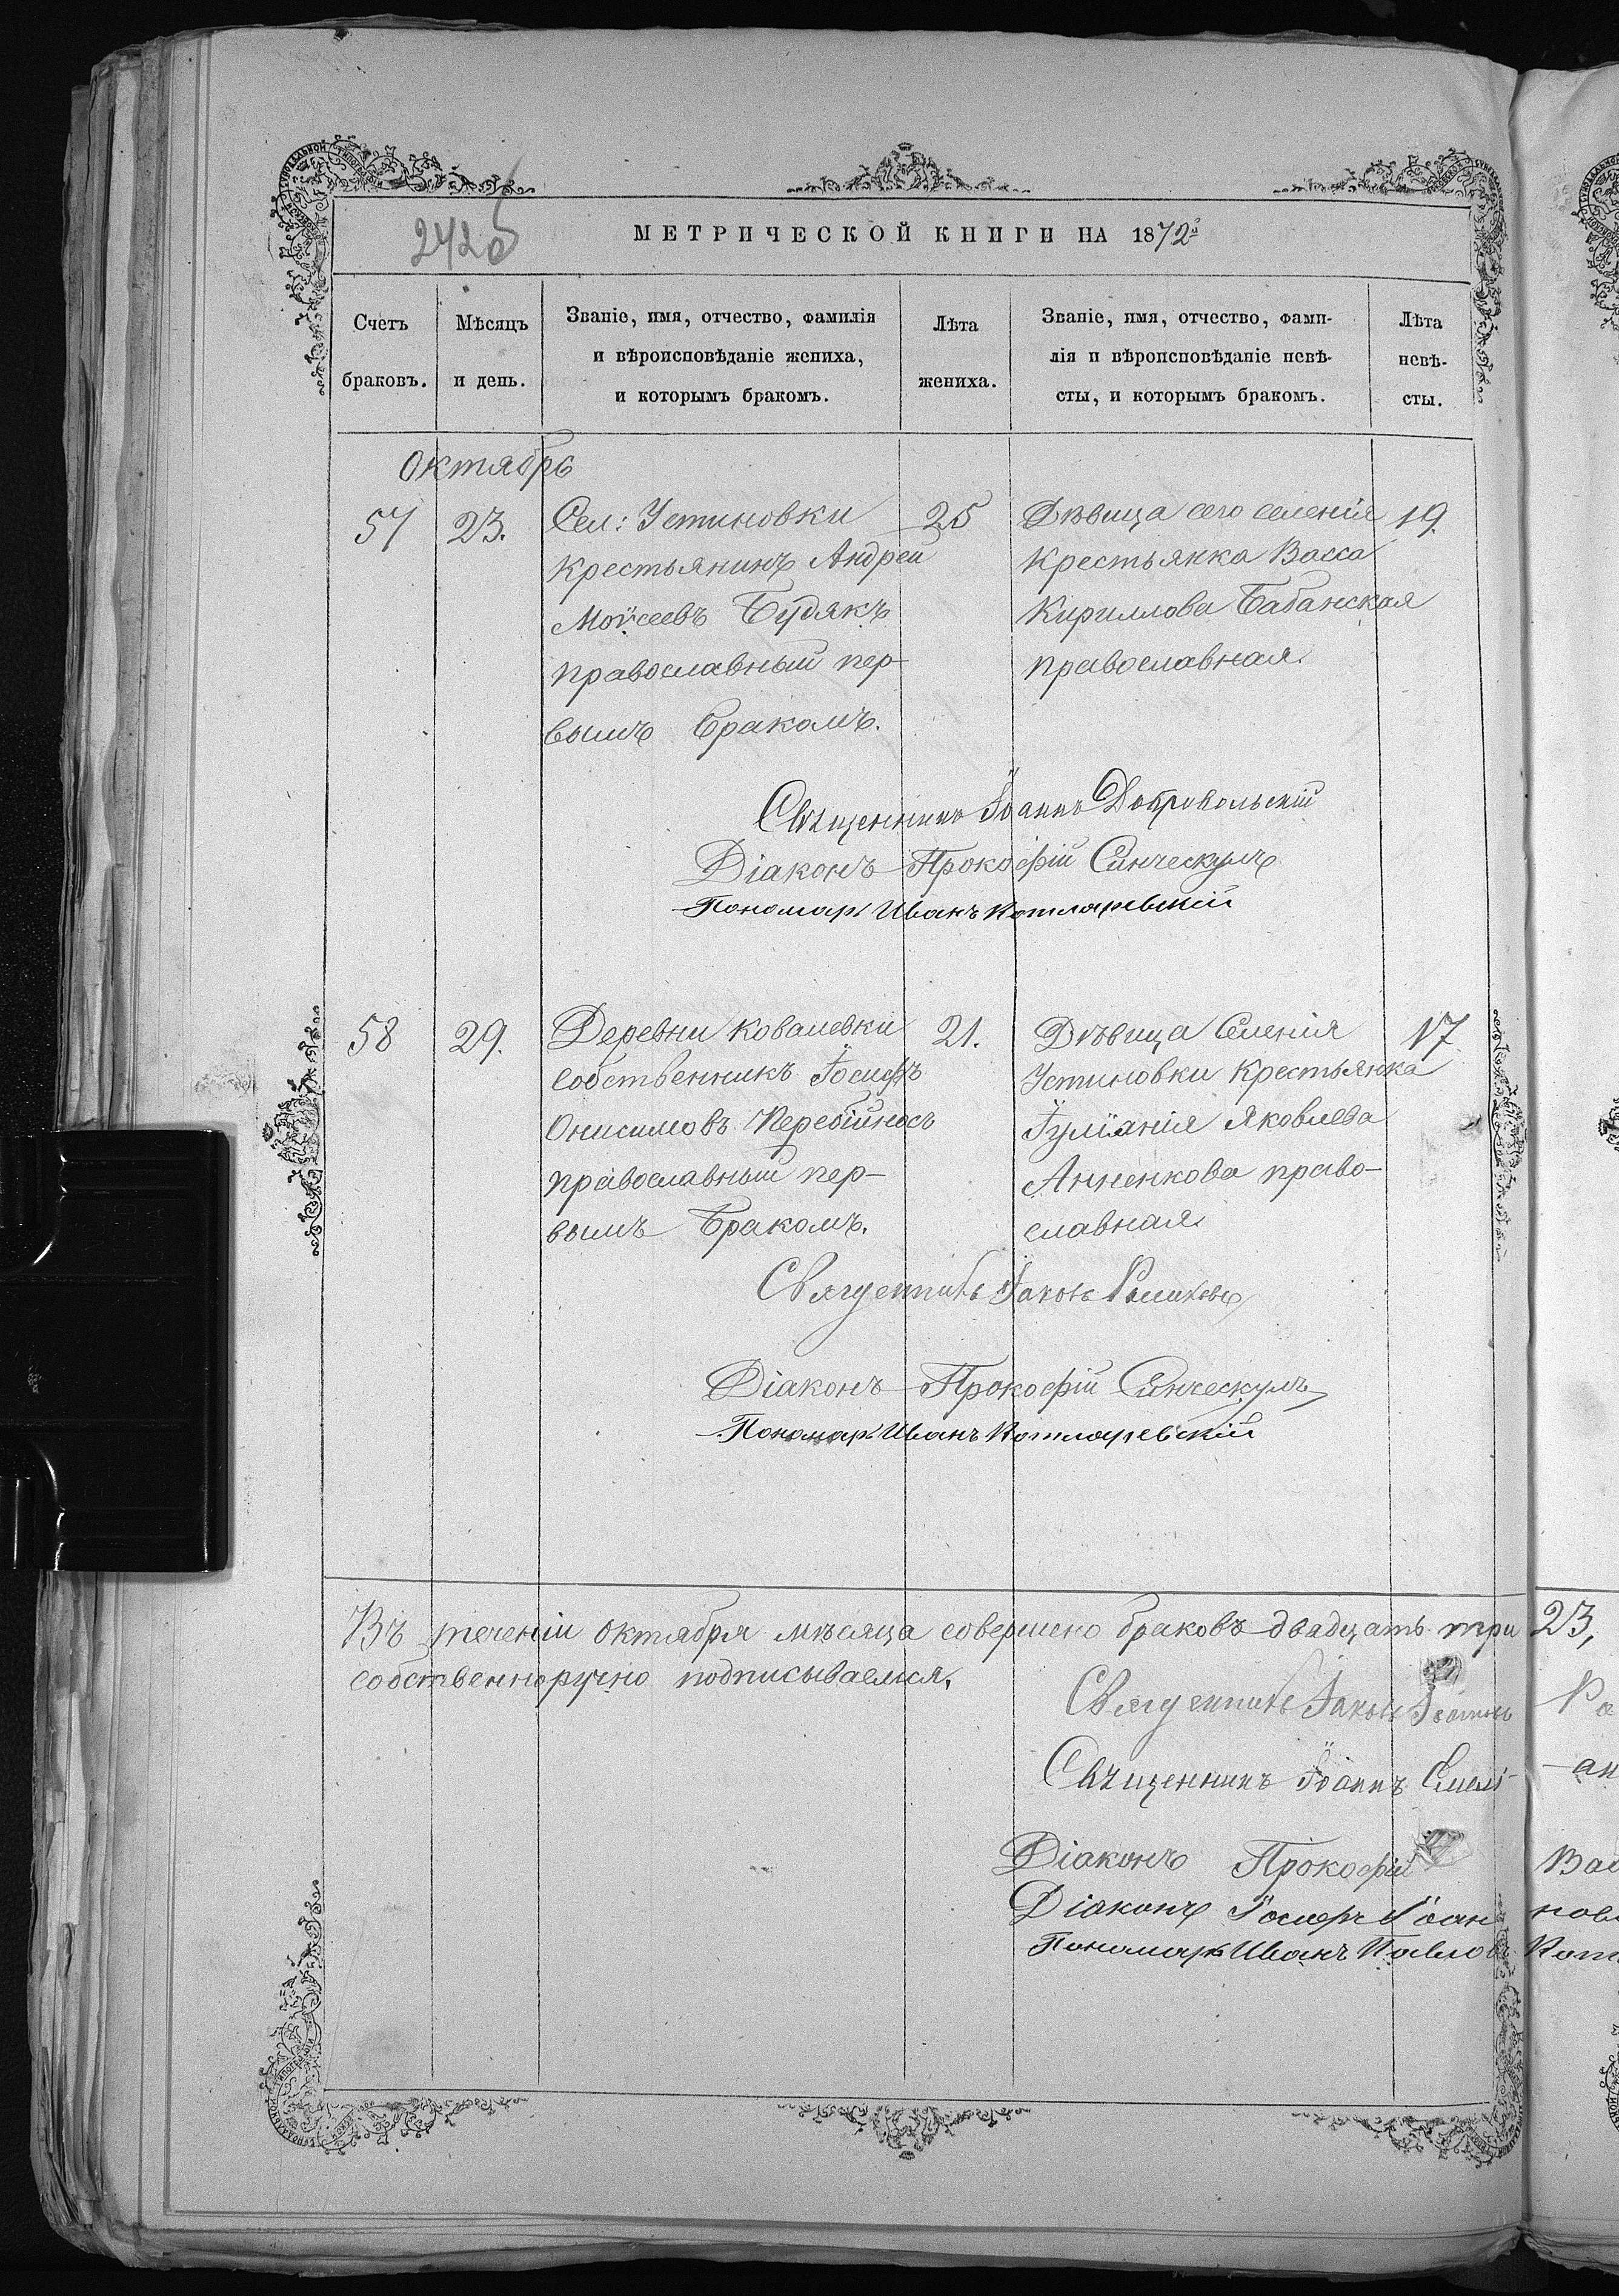 242б
МЕТРИЧЕСКОЙ КНИГИ НА 1872й
Счетъ браковъ.
Мѣсяцъ и день.
Званіе, имя, отчество, фамилія
и вѣроисповѣданіе жениха,
и которымъ бракомъ.
Лѣта жениха.
Званіе, имя, отчество, фами-
лія и вѣроисповѣданіе невѣ-
сты, и которымъ бракомъ.
Лѣта невѣ-
сты.
Октябрь
57
23.
Сел: Устиновки
крестьянинъ Андрей
Моѵсеевъ Будякъ
православный пер-
вымъ бракомъ.
25
Дѣвица сего селенія
крестьянка Васса
Кириллова Бабанская
православная.
19.
Священникъ Іоаннъ Добровольскій
Діаконъ Прокофій
Пономарь Иванъ Котляревскій
58
29.
Деревни Ковалевки
собственникъ Іосифъ
Онисимовъ Перебійносъ
православный пер-
вымъ бракомъ.
21.
Дѣвица Селенія
Устиновки крестьянка
Іуліанія Яковлева
Анненкова право-
славная.
17.
Священникъ Іаковъ
Діаконъ Прокофій
Пономарь Иванъ Котляревскій
Въ теченіи октября мѣсяца совершено браковъ двадцать три 23,
собственноручно подписываемся.
Священникъ Іаковъ
Священникъ Іоаннъ
Діаконъ Прокофій
Діаконъ Іосифъ Іоан
Пономарь Иванъ Павловъ